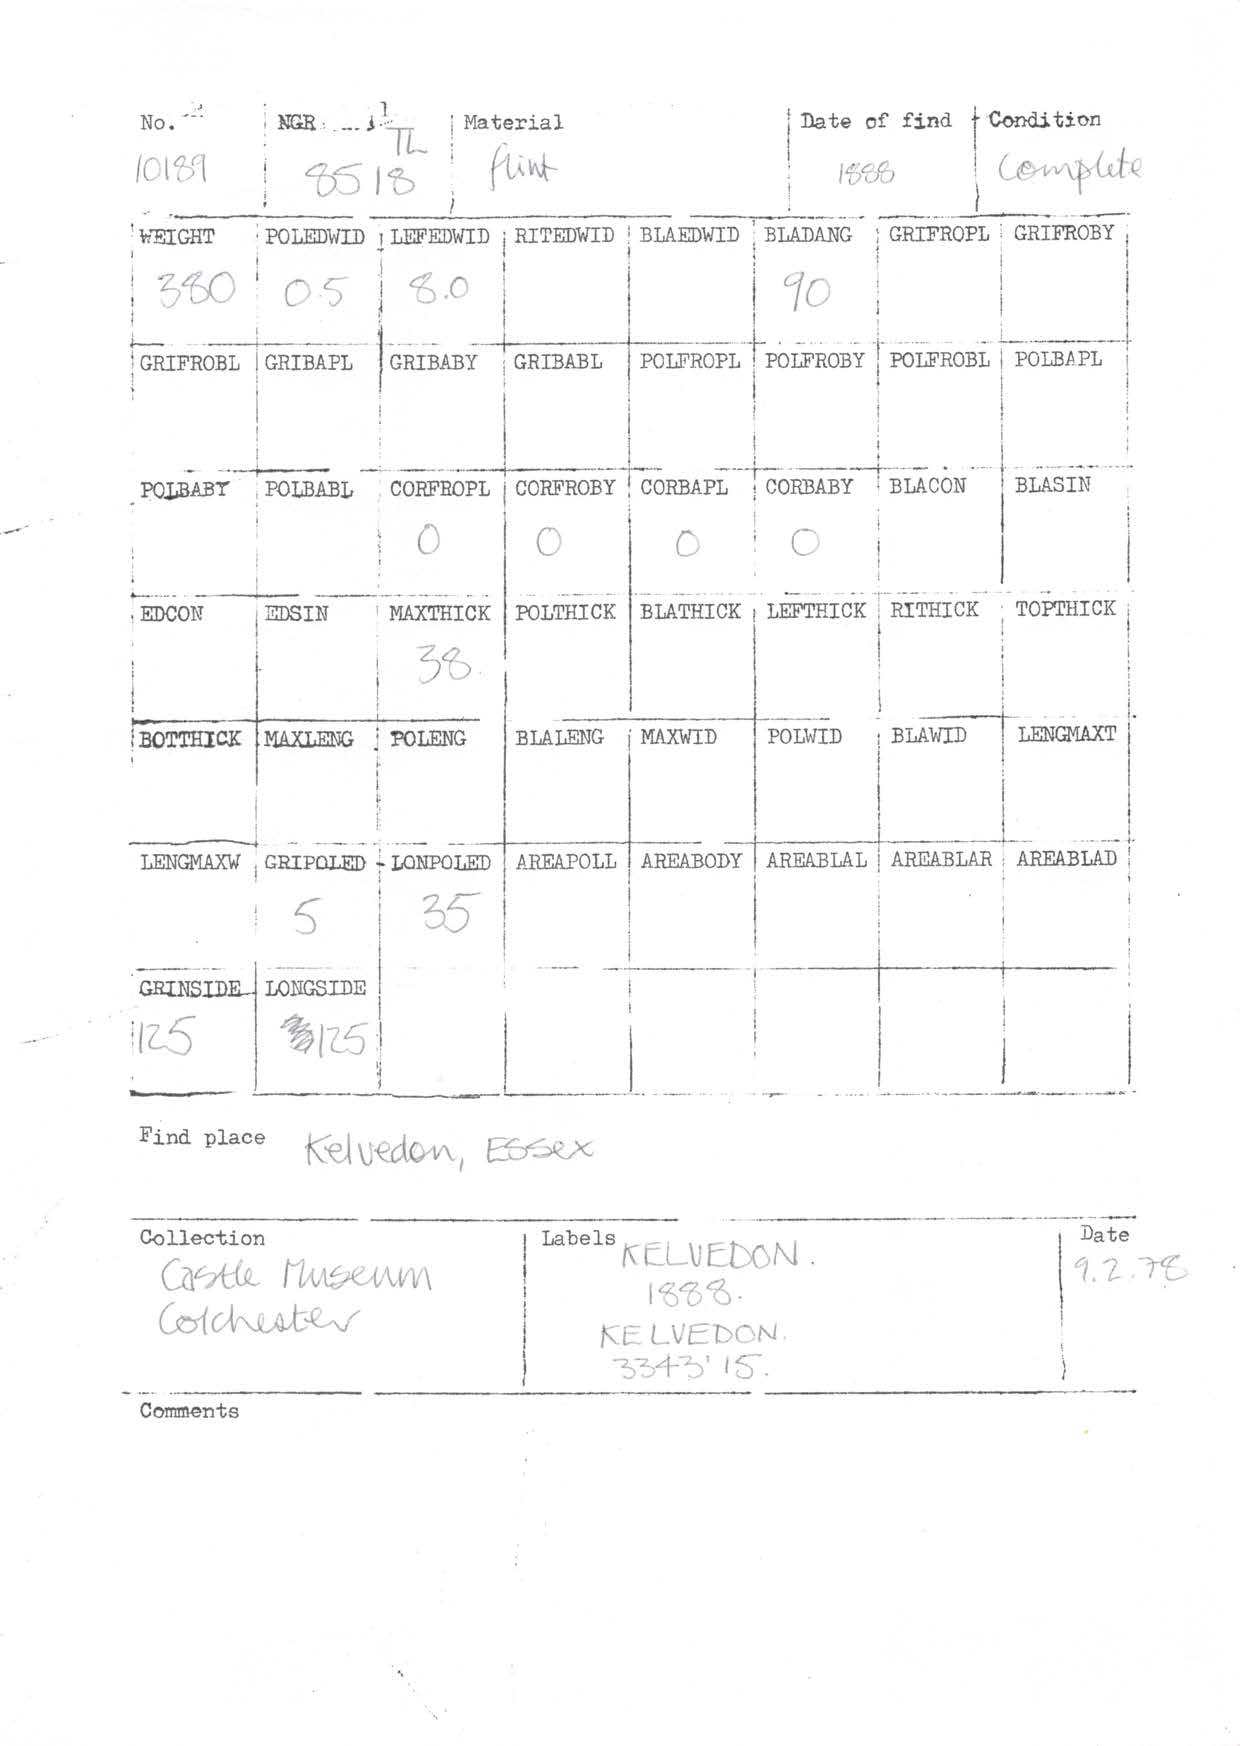 No. NGR Material Date of find Condition
10189 TL 8518 flint 1888 Complete
WEIGHT POLEDWID LEFEDWID RITEDWID BLAEDWID BLADANG GRIFROPL GRIFROBY
380 0.5 8.0 90
GRIFROBL GRIBAPL GRIBABY GRIBABL POLFROPL POLFROBY POLFROBL POLBAPL
POLBABY POLBABL CORFROPL CORFROBY CORBAPL CORBABY BLACON BLASIN
0 0 0 0
EDCON EDSIN MAXTHICK POLTHICK BLATHICK LEFTHICK RITHICK TOPTHICK
38
BOTTHICK MAXLENG POLENG BLALENG MAXWID POLWID BLAWID LENGMAXT
LENGMAXW GRIPOLED LONPOLED AREAPOLL AREABODY AREABLAL AREABLAR AREABLAD
5 35
GRINSIDE LONGSIDE
125 125
Find place Kelvedon, Essex
Collection Labels Date
Castle Museum
Colchester
KELVEDON.
1888.
KELVEDON.
3343'15.
9.2.78
Comments